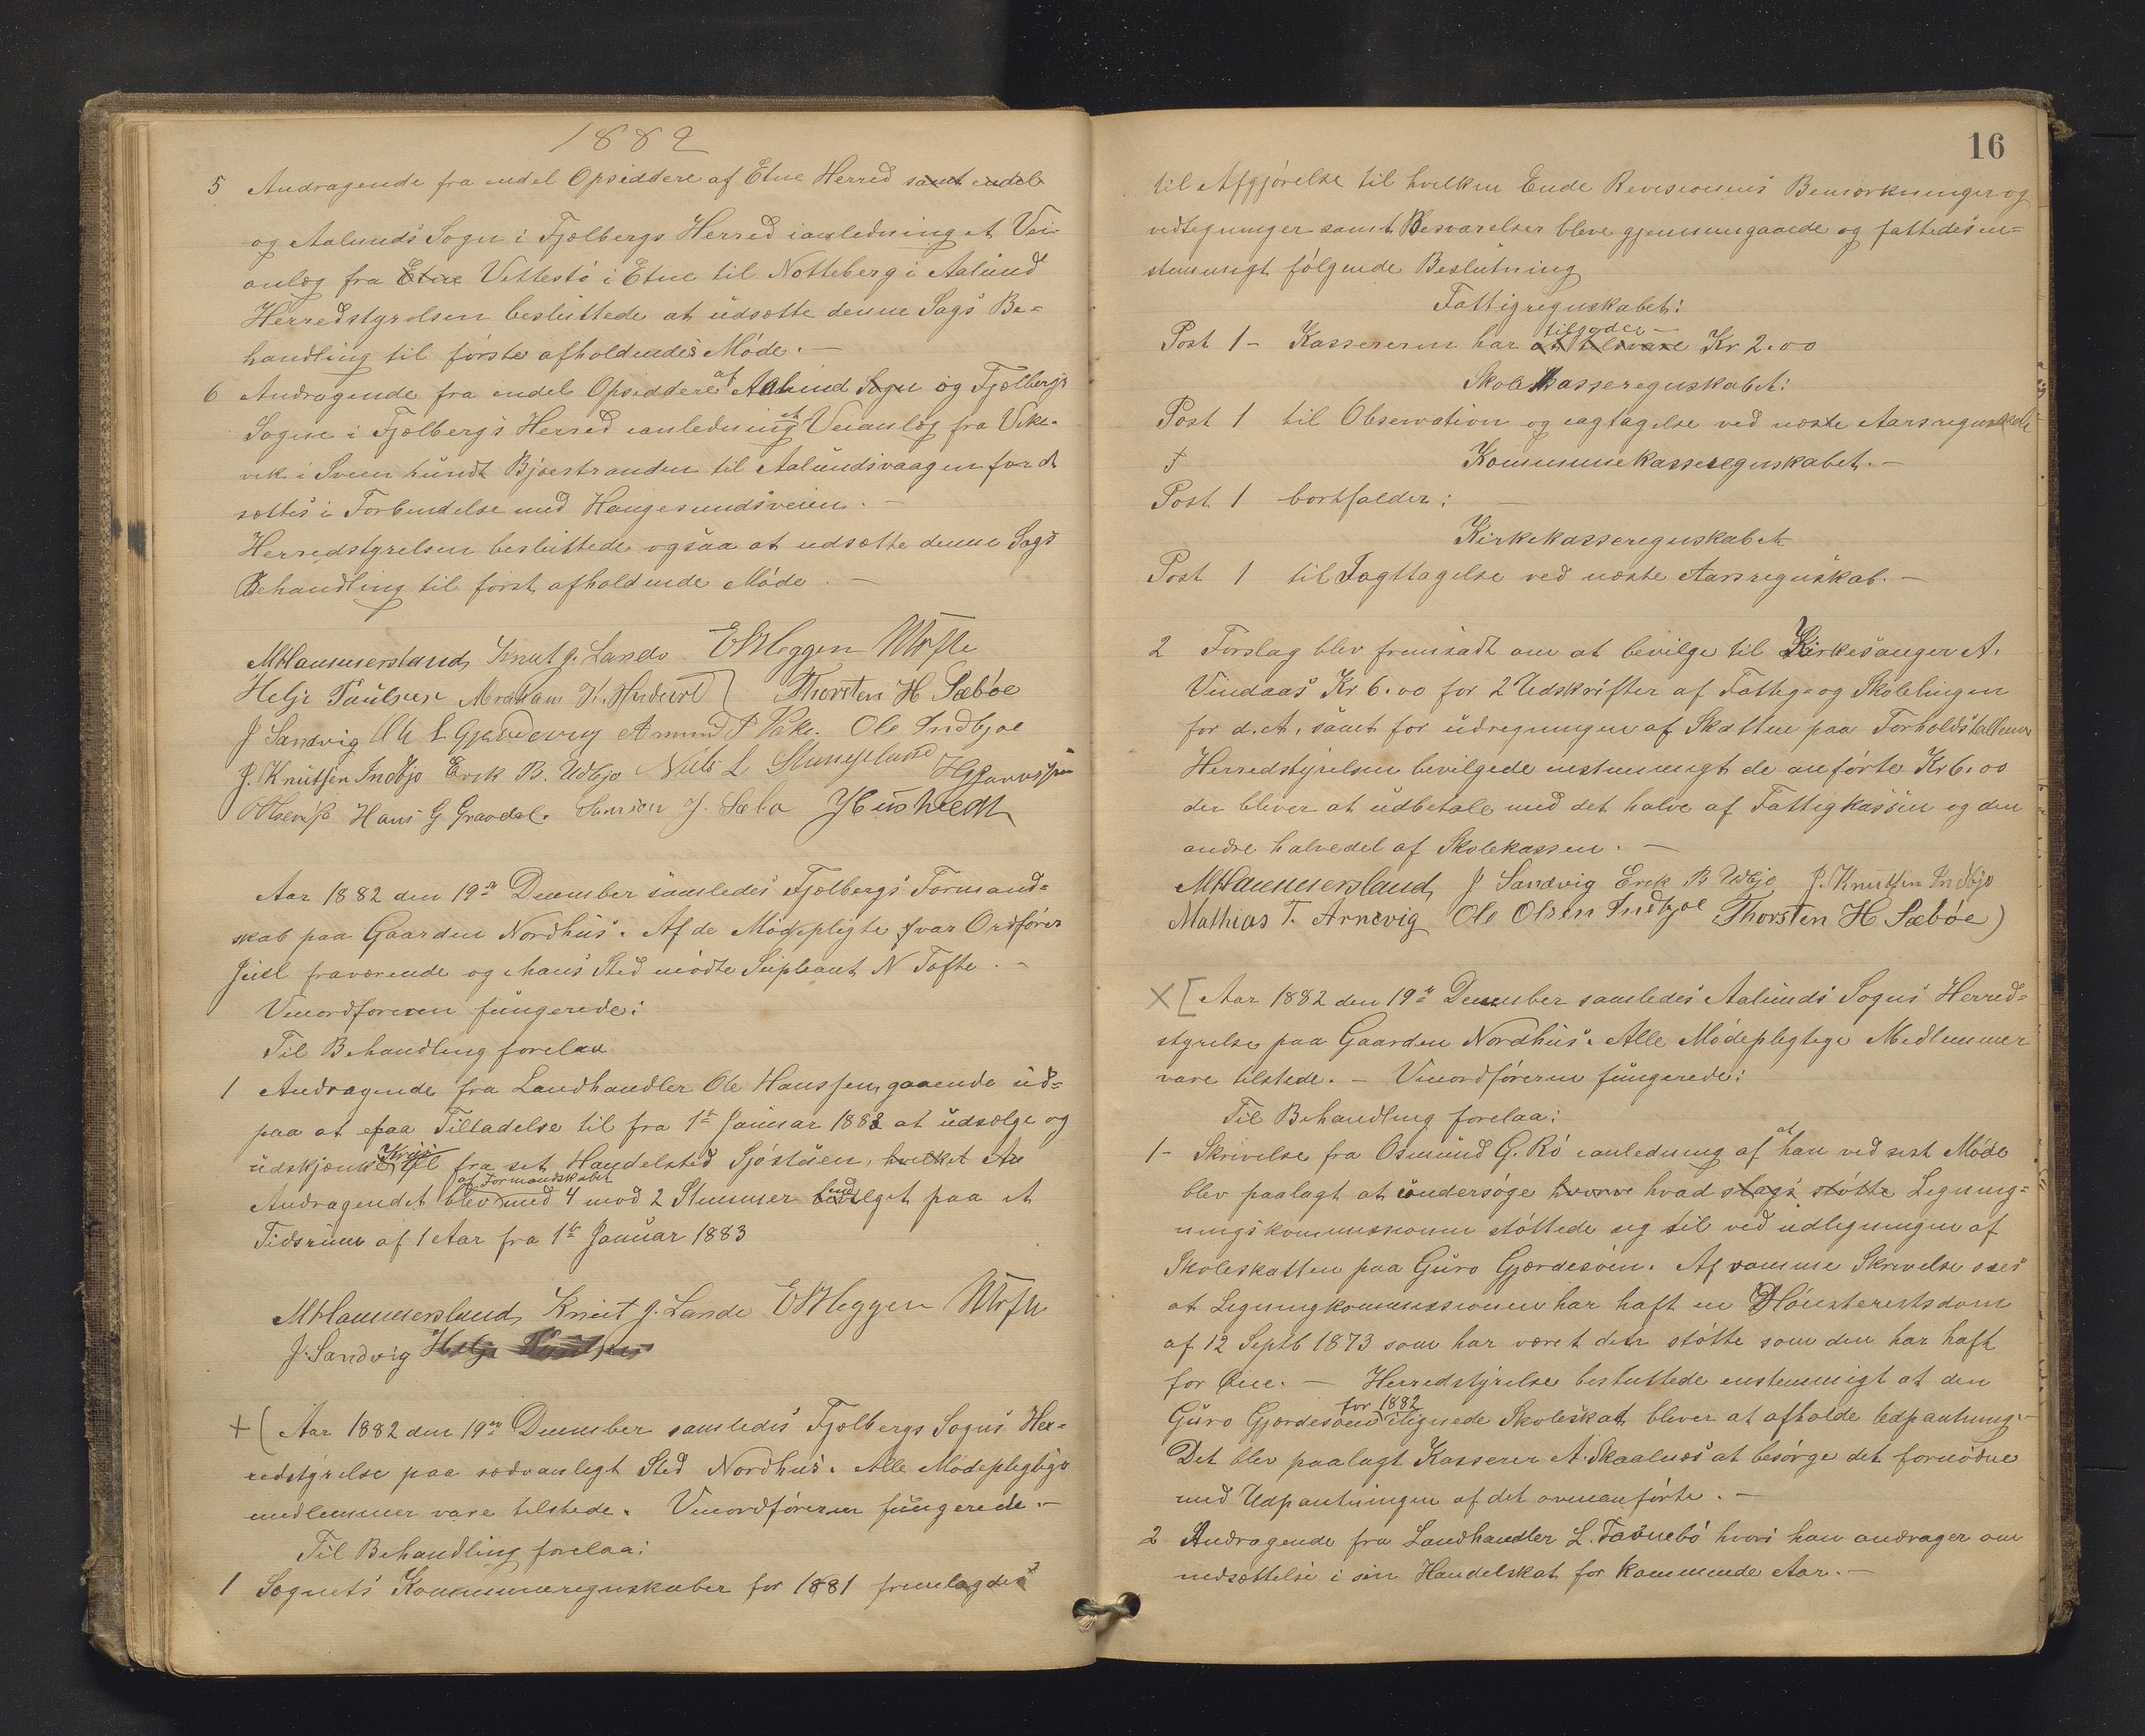 1882
5 Andragende fra endel Opsiddere af Etne Herred samt endel
og Aalunds Sogn i Fjælbergs Herred ianledning et Vei-
anlæg fra Etne Vettestø i Etne til Notteberg i Aalund
Herredstyrelsen besluttede at udsætte denne Sags Be-
handling til første afholdendes Møde. —
6 Andragende fra endel Opsiddere af Aalund Sogn og Fjelbergs
Sogne i Fjælbergs Herred ianledning et Veianlæg fra Vike-
vik i Sveen hundt Bjoestranden til Aalundsvaagen for d
sættes i Forbindelse med Haugesundsveien. —
Herredstyrelsen besluttede ogsaa at udsætte denne Sags
Behandling til først afholdende Møde. —
M Hammersland Knut J. Lande E B Heggen N Tofte
Helje Paulsen Abraham K. Thorsten H Sæbøe
J Sandvig Amund P Vake. Ole Indbjoe
J. Knutsen Indbjo Erek B. Udbjo Nils L Stangeland
Hans G Gravdal. Samson J. Sæbø
Aar 1882 den 19de December samledes Fjælbergs Formand-
skab paa Gaarden Nordhus. Af de Mødepligte var Ordfører
Juel fraværende og i hans Sted mødte Supleant N Tofte. —
Viceordføreren fungerede:
Til Behandling forelaa
1 Andragende fra Landhandler Ole Hanssen, gaaende ud-
paa at faa Tilladelse til fra 1ste Januar 1883 at udsælge og
udskjænke Øl fra set Handelsted Sjøstuen, hvilket An
af Formandskabet
Andragendet blev med 4 mod 2 Stemmer paa et
Tidsrum af 1 Aar fra 1ste Januar 1883
M Hammersland Knut J. Lande E B Heggen N Tofte
J. Sandvig Helje
+ ( Aar 1882 den 19de December samledes Fjælbergs Sogns Her-
redstyrelse paa sædvanligt Sted Nordhus. Alle Mødepligtige
medlemmer vare tilstede. Viceordføreren fungerede. —
Til Behandling forelaa:
1 Sognets Kommuneregnskaber for 1881 fremlagdes
16
til Afgjørelse til hvilken Ende Revesionens Bemærkninger og
vedtegninger samt Besvarelser bleve gjennemgaaede og fattedes en-
stemmigt følgende Beslutning
Fattigregnskabet:
tilgode —
Post 1 - Kassereren har at tilsvare Kr 2.00
Skolekasseregnskabet:
Post 1 til Observation og iagtagelse ved næste Aarsregnskab
Kommunekasseregnskabet. —
Post 1 bortfalder: —
Kirkekasseregnskabet
Post 1 til Iagttagelse ved næste Aarsregnskab. —
2 Forslag blev fremsadt om at bevilge til Kirkesanger A.
Vindaas Kr 6.00 for 2 Udskrifter af Fattig- og Skoleligningen
for d. A. samt for udregningen af Skatten paa Forholdstallene
Herredstyrelsen bevilgede enstemmigt de anførte Kr 6.00
der bliver at udbetale med det halve af Fattigkassen og den
andre halvedel af Skolekassen. —
M Hammersland J Sandvig Erek B Udbjo J. Knutsen Indbjo
Mathias T. Arnevig Ole Olsen Indbjoe Thorsten H Sæbøe)
X [ Aar 1882 den 19de December samledes Aalunds Sogns Herred-
styrelse paa Gaarden Nordhus. Alle Mødepligtige Medlemmer
vare tilstede. — Viceordføreren fungerede:
Til Behandling forelaa:
1 - Skrivelse fra Osmund G. Rø ianledning af at han ved sist Møde
blev paalagt at undersøge hvorve hvad slags støtte Ligning-
ningskommissionen støttede seg til ved udligningen af
Skoleskatten paa Guro Gjærdesøen. Af samme Skrivelse sees
at Ligningkommissionen har haft en Høiesterestsdom
af 12 Septb 1873 som har været den støtte som den har haft
for Øie. — Herredstyrelse besluttede enstemmigt at den
for 1882
Guro Gjærdesøens ilignede Skoleskat bliver at afholde Udpantning. —
Det blev paalagt Kasserer A. Skaalnæs at besørge det fornødne
med Udpantningen af det ovenanførte. —
2 Andragende fra Landhandler L. Faonebø hvori han andrager om
nedsættelse i sin Handelskat for kommende Aar. —